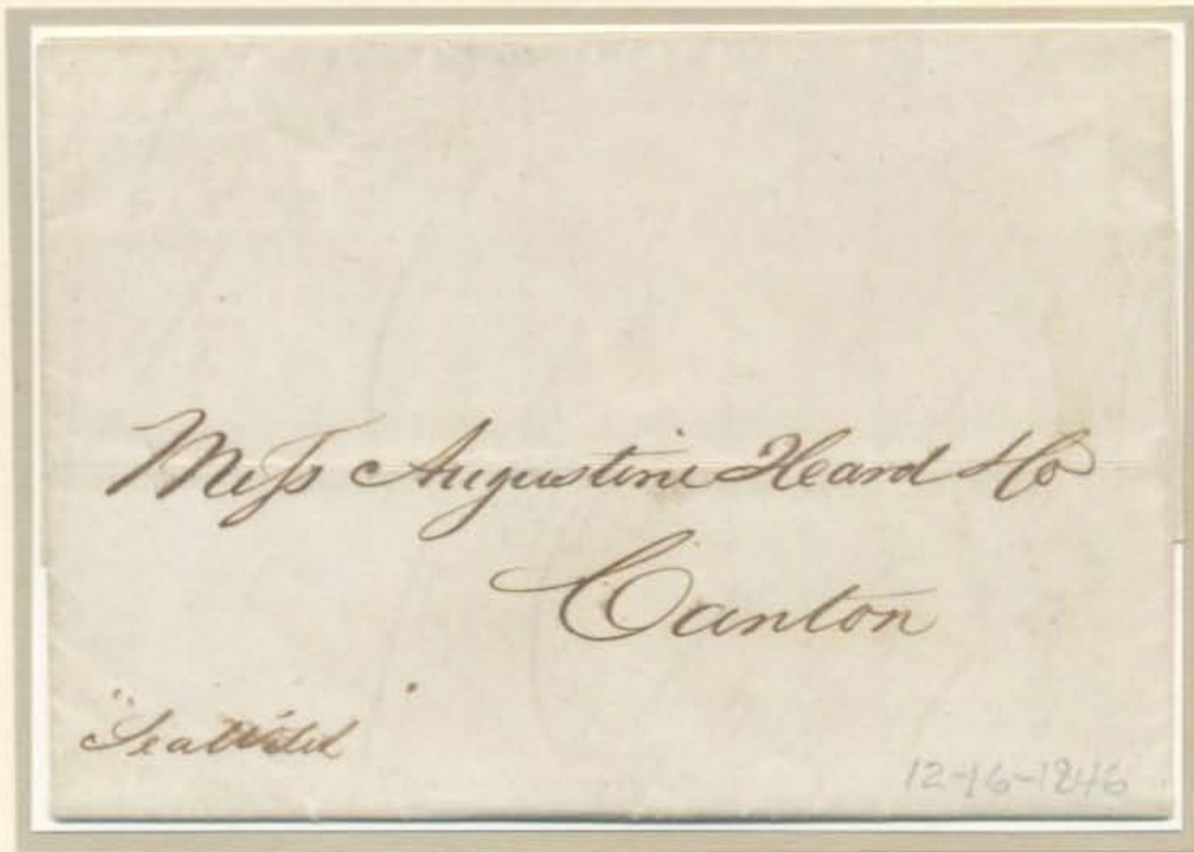 Messs Augustine Heard & Co
Canton
"Sea Witch"
12-16-1846